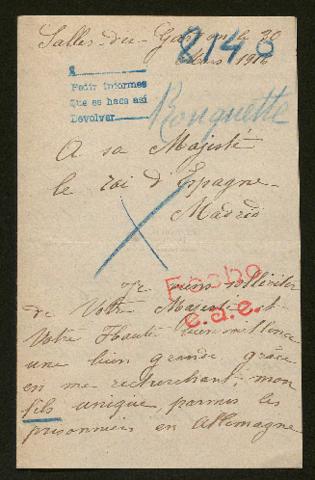 Salles-du-Gardon le 30
8140
Mars 1916
Pedir informes
Que se haca así
Devolver
Rouquette
A sa Majesté
le roi d'Espagne
Madrid
Fecho
e.a.e.
Je viens solliciter
de Votre Majesté et
Votre Haute bienveillence
une bien grande grâce
en me recherchant, mon
fils unique, parmis les
prisonniers en Allemagne